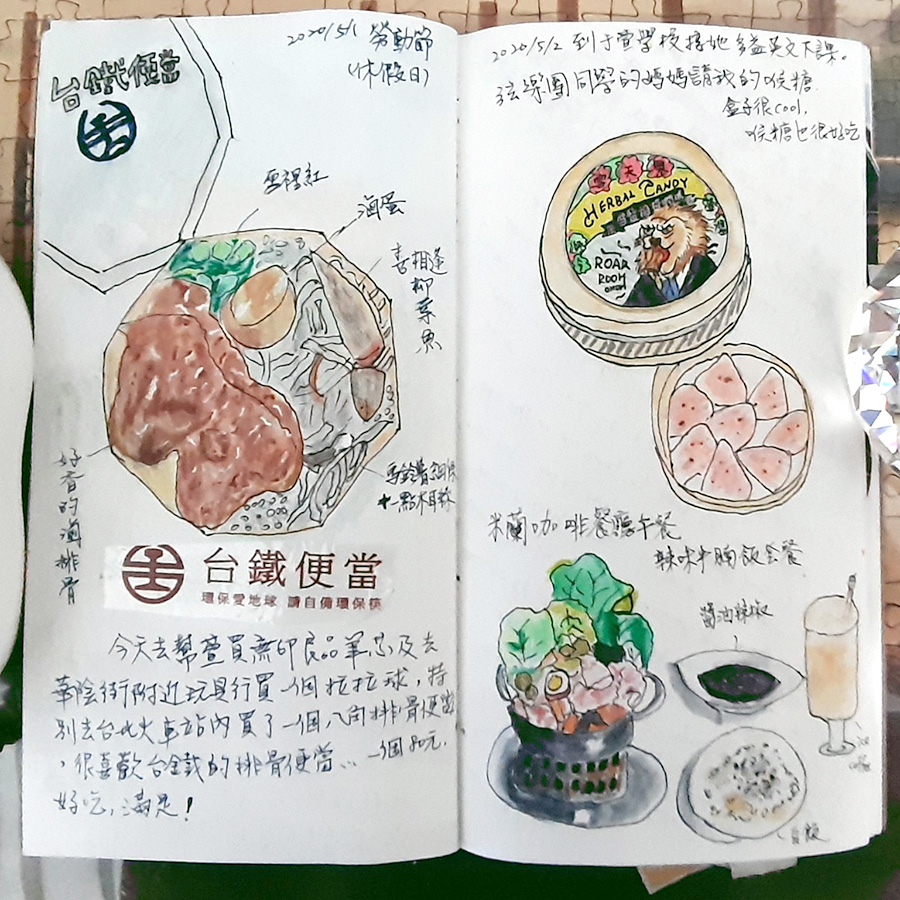 台鐵便當
2020/5/1 勞動節
(休假日)
雪裡紅
滷蛋
喜相逢
柳葉魚
好香的滷排骨
馬鈴薯細條
+一點木耳絲
台鐵便當
環保愛地球 請自備環保筷
今天去幫萱買無印良品筆芯及去
華陰街附近玩具行買一個拉拉球,特
別去台北火車站內買了一個八角排骨便當
,很喜歡台鐵的排骨便當... 一個80元.
好吃,滿足!
2020/5/2 到于萱學校接她多益英文下課。
弦樂團同學的媽媽請我的喉糖
盒子很cool,
喉糖也很好吃
HERBAL CANDY
ROAR
ROOM
米蘭咖啡餐廳午餐
辣味牛腩飯套餐
醬油辣椒
白飯